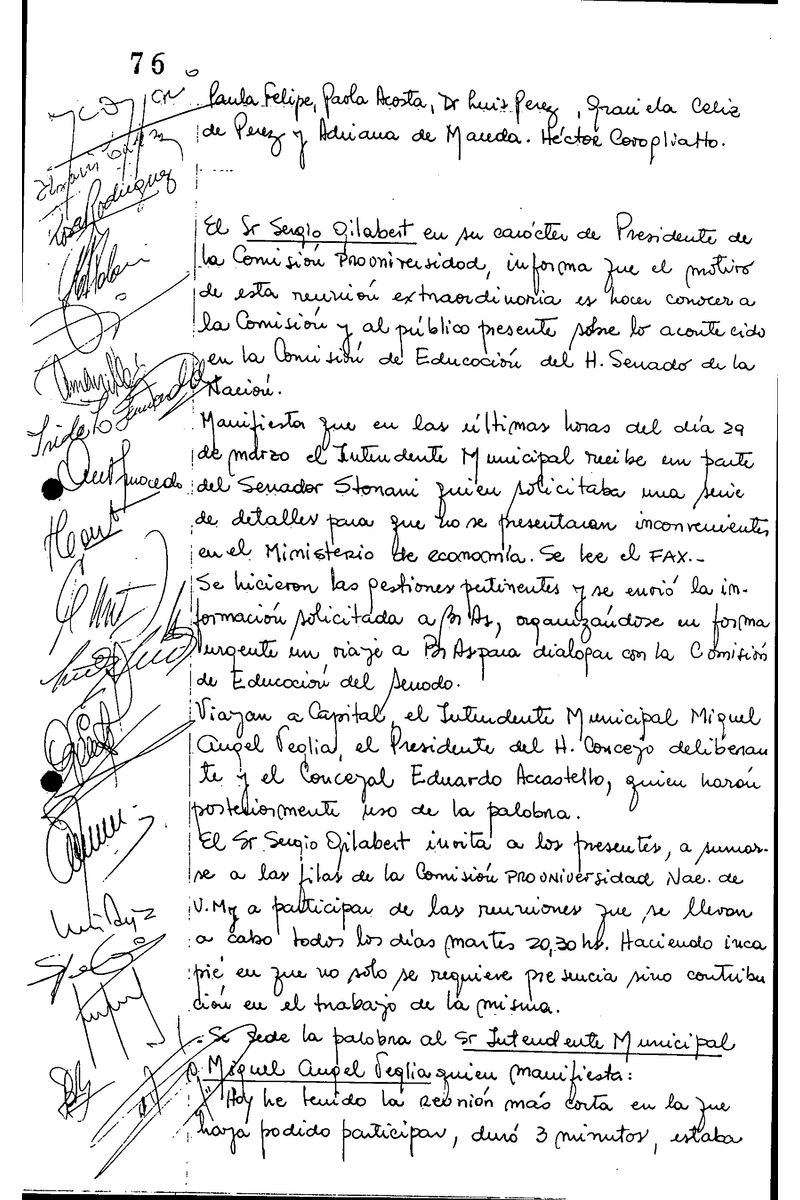 76
Paula Felipe, Paola Acosta, Dr Luis Perez, Graciela Celiz
de Perez y Adriana de Maueda. Héctor Coropliatto.
El Sr Sergio Gilabert en su carácter de Presidente de
la Comisión Prouniversidad, informa que el motivo
de esta reunión extraordinaria es hacer conocer a
la Comisión y al público presente sobre lo acontecido
en la Comisión de Educación del H. Senado de la
Nación.
Rosa Rodriguez
Manifiesta que en las últimas horas del día 29
de marzo el Intendente Municipal recibe un parte
del Senador Storani quien solicitaba una serie
de detalles para que no se presentaran inconvenientes
en el Ministerio de economía. Se lee el FAX.-
Se hicieron las gestiones pertinentes y se envió la in-
formación solicitada a Bs As, organizándose en forma
urgente un viaje a Bs As para dialogar con la Comisión
de Educación del Senado.
Viajan a Capital, el Intendente Municipal Miguel
Angel Veglia, el Presidente del H. Concejo deliberan
te y el Concejal Eduardo Accastello, quien harán
posteriormente uso de la palabra.
El Sr Sergio Gilabert invita a los presentes, a sumar-
se a las filas de la Comisión Prouniversidad Nac. de
V.M y a participar de las reuniones que se llevan
a cabo todos los días martes 20,30 hs. Haciendo inca
pié en que no solo se requiere presencia sino contribu
ción en el trabajo de la misma.
- Se sede la palabra al Sr Intendente Municipal
Miguel Angel Veglia quien manifiesta:
"Hoy he tenido la reunión más corta en la que
haya podido participar, duró 3 minutos, estaba